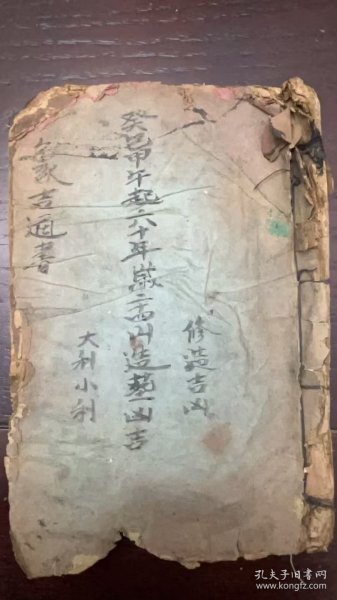 修造吉凶
癸巳甲午起六十年歲二十四山造葬凶吉
大利小利
象吉通書
孔夫子旧书网
www.kongfz.com